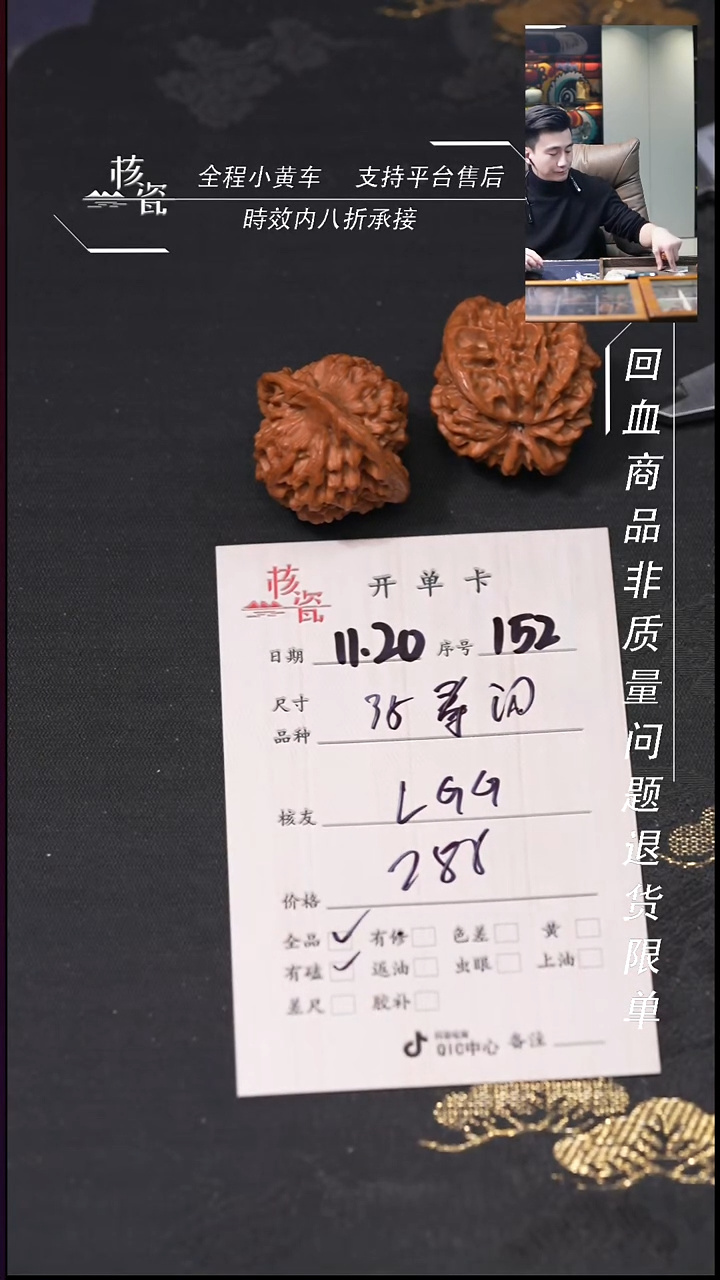 核瓷
全程小黄车 支持平台售后
時效内八折承接
回血商品非质量问题退货限单
核瓷 开单卡
日期 11.20 序号 152
尺寸
品种 35 闷
核友 LGG
价格 288
全品 ✓ 有修 色差 黄
有磕 ✓ 返油 虫眼 上油
差尺 胶补
QIC中心 备注